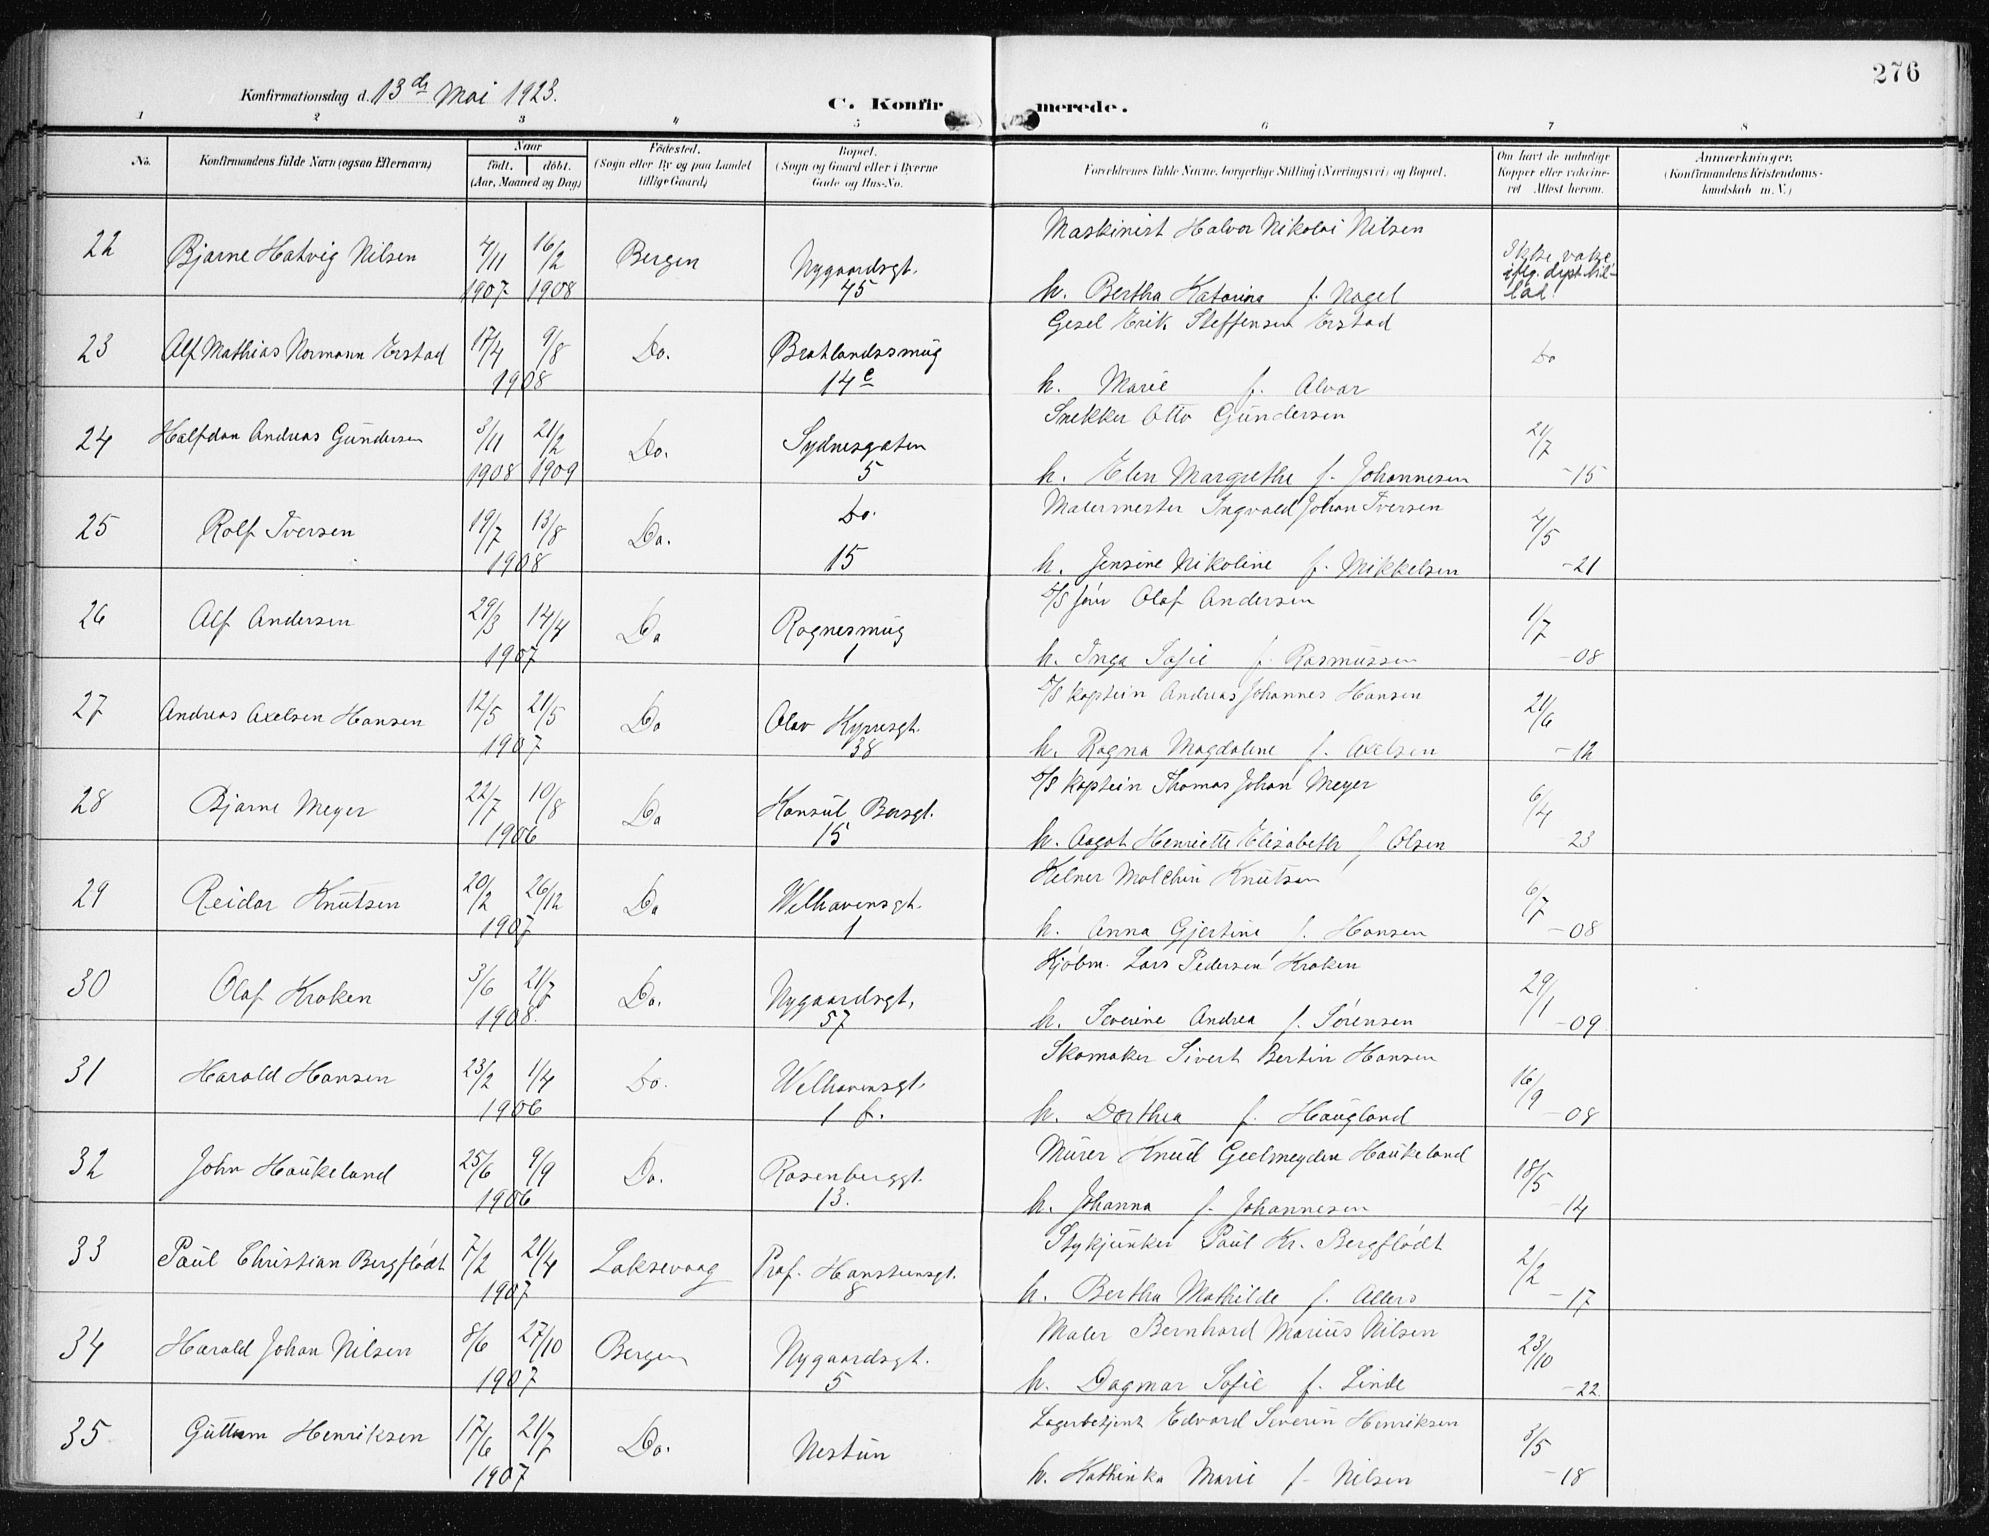 276
Konfirmationsdag d. 13de Mai 1923.
C. Konfirmerede.
1 2 3 4 5 6 7 8
No.
Konfirmandens fulde Navn (ogsaa Efternavn)
Naar
födt. döbt.
(Aar, Maaned og Dag)
Födested.
(Sogn eller By og paa Landet
tillige Gaard)
Bopæl.
(Sogn og Gaard eller i Byerne
Gade og Hus-No.
Forældrenes fulde Navne, borgerlige Stilling (Næringsvei) og Bopæl.
Om havt de naturlige
Kopper eller vakcine-
ret Attest herom.
Anmærkninger.
(Konfirmandens Kristendoms-
kundskab m. V.)
Maskinist Halvor Nikolai Nilsen
22 Bjarne Hatvig Nilsen 4/11 16/2 Bergen Nygaardsgt. Ikke vakc.
1907 1908 45 h. Bertha Katarina f. Nagel
Gesel Erik Steffensen Erstad
23 Alf Mathias Normann Erstad 17/4 9/8 Do. Bratlandssmug Do
1908 14e h. Marie f. Alvar
Snekker Otto Gundersen
24 Halfdan Andreas Gundersen 3/11 21/2 Do. Sydnesgaten 21/7
1908 1909 5 h. Elen Margrethe f. Johannesen -15
Malermester Ingvald Johan Iversen
25 Rolf Iversen 19/7 13/8 Do. Do. 4/5
1908 15 h. Jensine Nikoline f. Mikkelsen -21
Olaf Andersen
26 Alf Andersen 29/3 14/4 Do Rognesmug 1/7
1907 1 h. Inga Sofie f. Rasmussen -08
D/S kaptein Andreas Johannes Hansen
27 Andreas Axelsen Hansen 12/5 21/5 Do Olav Kyrresgt. 21/6
1907 38 h. Ragna Magdaline f. Axelsen -12
D/S kaptein Thomas Johan Meyer
28 Bjarne Meyer 22/7 10/8 Do Konsul Børsgt. 6/4
1906 15 h. Aagot Henriette Elisabeth f. Olsen -23
Kelner Molchin Knutsen
29 Reidar Knutsen 20/2 26/12 Do Welhavensgt. 6/7
1907 1 h. Anna Gjertine f. Hansen -08
Kjøbm. Lars Pedersen Kroken
30 Olaf Kroken 3/6 21/7 Do. Nygaardsgt. 29/1
1908. 57 h. Severine Andrea f. Sørensen -09
Skomaker Sivert Bertin Hansen
31 Harald Hansen 23/2 1/4 Do. Welhavensgt. 16/9
1906 1 b. h. Dorthea f. Haugland -08
Murer Knud Geelmeyden Haukeland
32 John Haukeland 25/6 9/9 Do. Rosenberggt. 18/5
1906 13. h. Johanna f. Johannesen -14
Stykjunker Paul Kr. Bergflødt
33 Paul Christian Bergflødt 7/2 21/4 Laksevaag Prof. Hansteensgt. 2/2
1907 8 h. Bertha Mathilde f. Allers -17
Maler Bernhard Marius Nilsen
34 Harald Johan Nilsen 8/6 27/10 Bergen Nygaardsgt. 23/10
1907 5 h. Dagmar Sofie f. Linde -22
Lagerbetjent Edvard Severin Henriksen
35 Guttorm Henriksen 17/6 21/7 Do. Nestun 3/5
1907 h. Kathinka Marie f. Nilsen -18